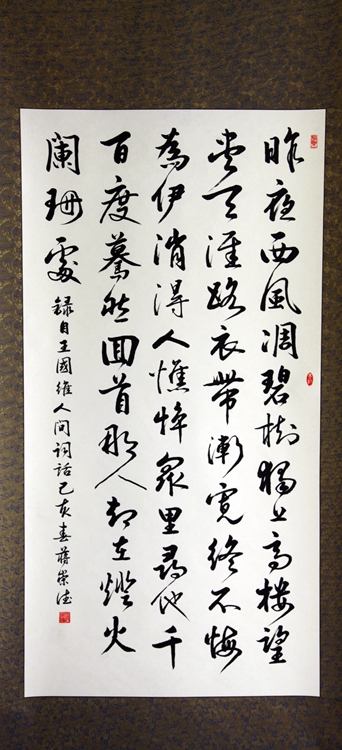 昨夜西風凋碧樹獨上高樓望
盡天涯路衣帶漸寬終不悔
為伊消得人憔悴眾里尋他千
百度驀然回首那人却在燈火
闌珊處 録自王國維人間詞話己亥春蔣崇德